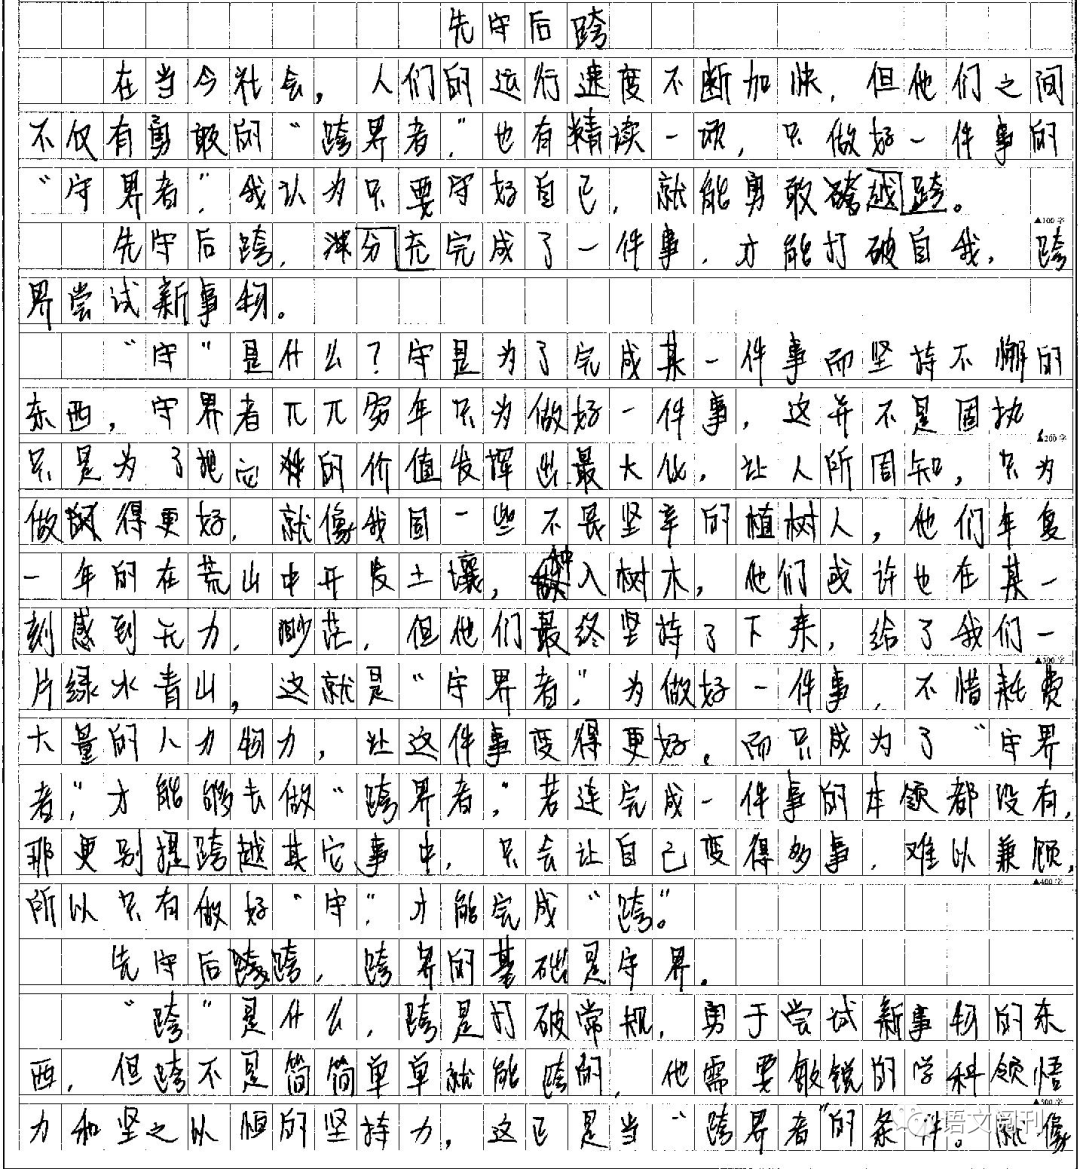 先守后跨
在当今社会，人们的运行速度不断加快，但他们之间
不仅有勇敢的“跨界者，”也有精读一项，只做好一件事的
“守界者”，我认为只要守好自己，就能勇敢跨越跨。
▲100字
先守后跨，深分充完成了一件事，才能打破自我，跨
界尝试新事物。
“守”是什么？守是为了完成某一件事而坚持不懈的
东西，守界者兀兀穷年只为做好一件事，这并不是固执
▲200字
只是为了把它的价值发挥出最大化，让人所周知，只为
做得更好，就像我国一些不畏坚辛的植树人，他们年复
一年的在荒山中开发土壤，种入树木，他们或许也在某一
刻感到无力，渺茫，但他们最终坚持了下来，给了我们一
▲300字
片绿水青山，这就是“守界者，”为做好一件事，不惜耗费
大量的人力物力，让这件事变得更好，而只成为了“守界
者，”才能够去做“跨界者，”若连完成一件事的本领都没有，
那更别提跨越其它事中，只会让自己变得多事，难以兼顾，
▲400字
所以只有做好“守”，才能完成“跨。”
先守后跨，跨界的基础是守界。
“跨”是什么，跨是打破常规，勇于尝试新事物的东
西，但跨不是简简单单就能跨的，他需要敏锐的学科领悟
▲500字
力和坚之以恒的坚持力，这已是当“跨界者”的条件。就像
语文阅刊